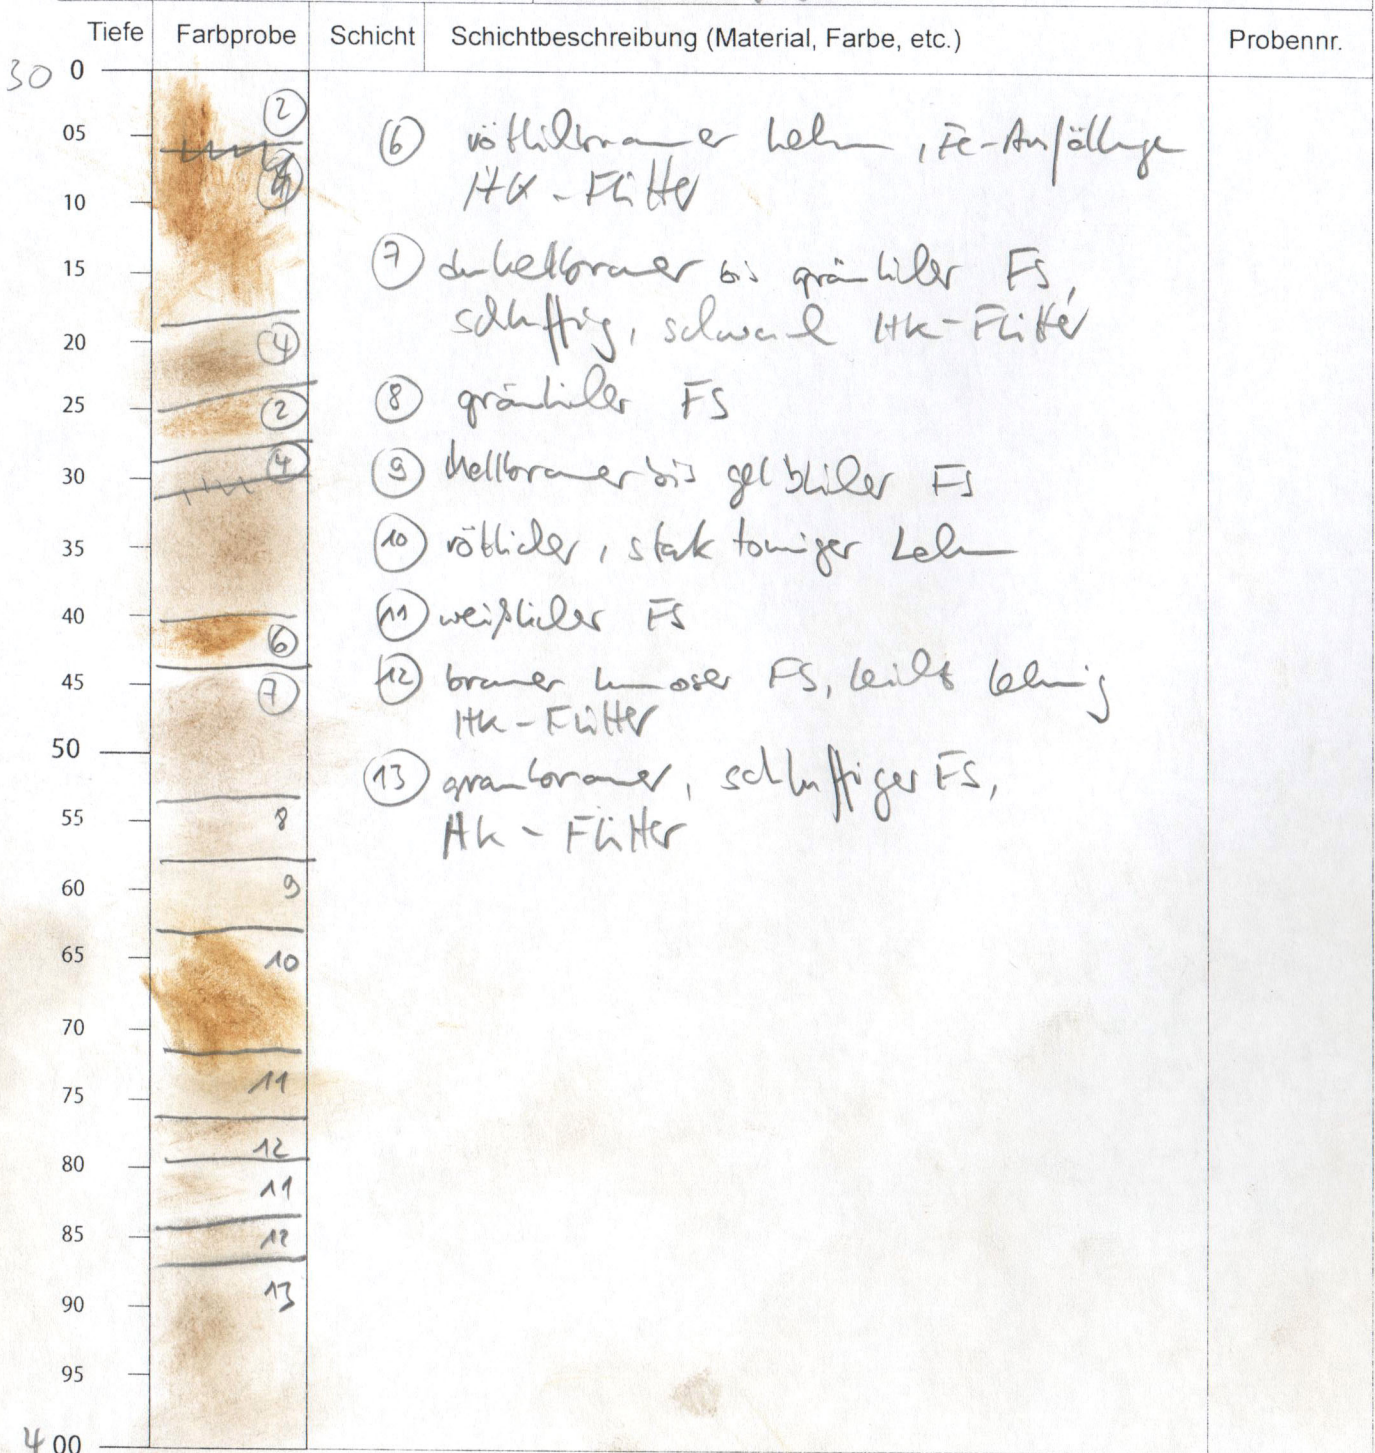 Tiefe Farbprobe Schicht Schichtbeschreibung (Material, Farbe, etc.) Probennr.
30 0
2
05
4
10
15
20
4
25
2
30
4
35
40
6
45
7
50
55
8
60
9
65
10
70
75
11
80
12
11
85
12
90
13
95
4 00
6 rötlichbrauner Lehm, Fe-Ausfällunge
HK-Flitter
7 dunkelbrauner bis gräulicher FS,
schluffig, schwach HK-Flitter
8 gräulicher FS
9 hellbrauner bis gelblicher FS
10 rötlicher, stark toniger Lehm
11 weißlicher FS
12 brauner humoser FS, leicht lehmig
HK-Flitter
13 graubrauner, schluffiger FS,
HK-Flitter